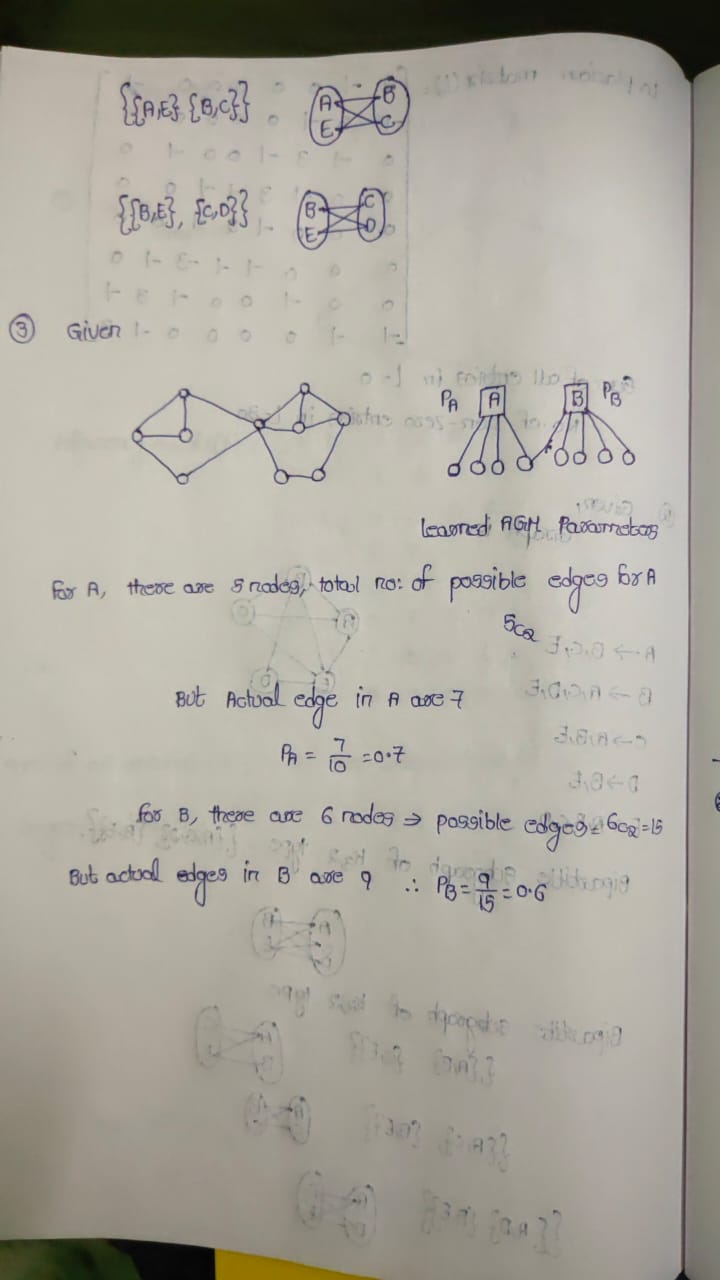 {{A,E} {B,C}}
A B
E C
{{B,E}, {C,D}}
B C
E D
③ Given
PA A B PB
learned AGM Parameters
For A, there are 5 nodes, total no: of possible edges for A
5C2
But Actual edge in A are 7
PA = 7/10 = 0.7
for B, there are 6 nodes ⇒ possible edges = 6C2 = 15
But actual edges in B are 9 ∴ PB = 9/15 = 0.6